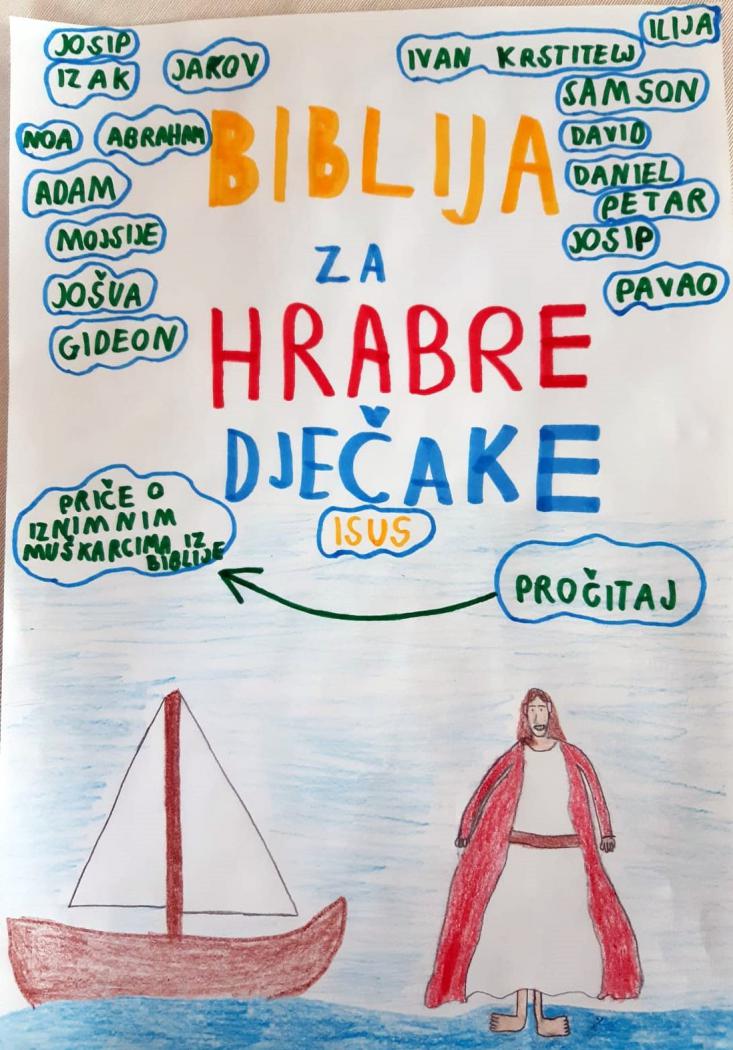 JOSIP
IZAK
JAKOV
NOA
ABRAHAM
ADAM
MOJSIJE
JOŠUA
GIDEON
IVAN KRSTITELJ
ILIJA
SAMSON
DAVID
DANIEL
PETAR
JOSIP
PAVAO
BIBLIJA
ZA
HRABRE
DJEČAKE
ISUS
PRIČE O
IZNIMNIM
MUŠKARCIMA IZ
BIBLIJE
PROČITAJ